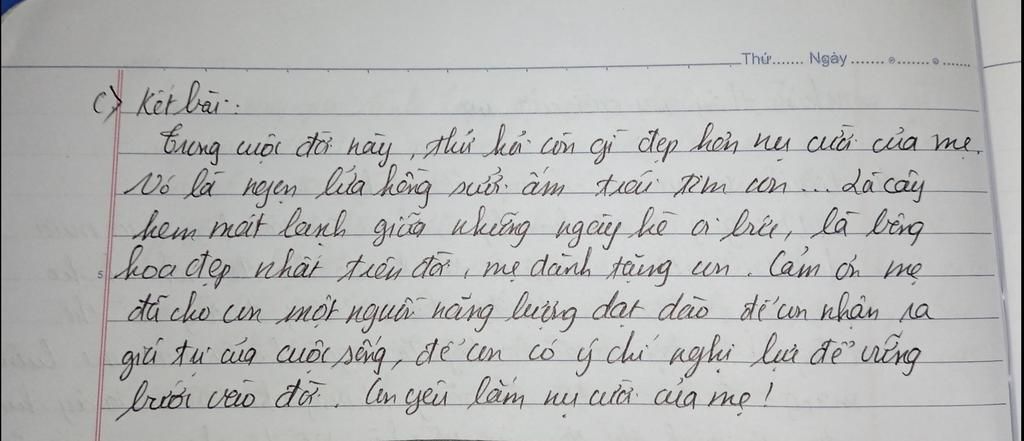 Thứ....... Ngày ....... ....... .......
C) Kết bài:
Trong cuộc đời này, thử hỏi còn gì đẹp hơn nụ cười của mẹ.
Nó là ngọn lửa hồng sưởi ấm trái tim con... Là cây
kem mát lạnh giữa những ngày hè oi bức, là bông
5 hoa đẹp nhất trên đời, mẹ dành tặng con. Cảm ơn mẹ
đã cho con một nguồn năng lượng dạt dào để con nhận ra
giá trị của cuộc sống, để con có ý chí nghị lực để vững
bước vào đời. Con yêu lắm nụ cười của mẹ!